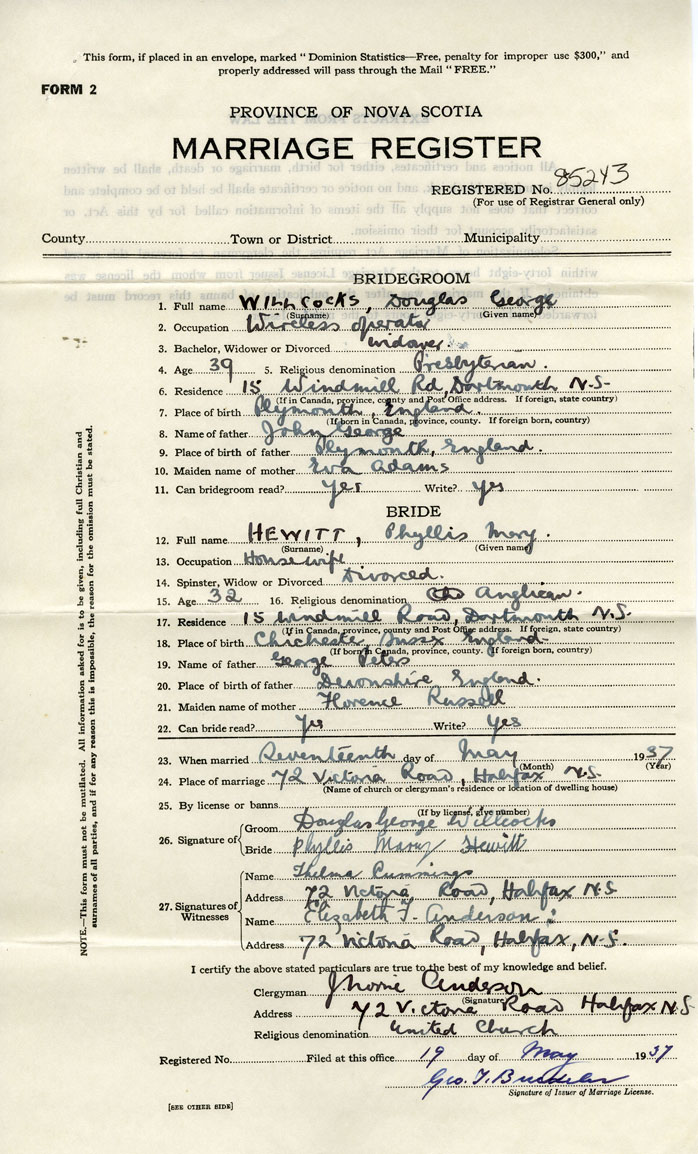 This form, if placed in an envelope, marked "Dominion Statistics—Free, penalty for improper use $300," and
properly addressed will pass through the Mail "FREE."
FORM 2
PROVINCE OF NOVA SCOTIA
MARRIAGE REGISTER
REGISTERED No. 85243
(For use of Registrar General only)
County Town or District Municipality
BRIDEGROOM
1. Full name WILLCOCKS, Douglas George
(Surname) (Given name)
2. Occupation Wireless operator
3. Bachelor, Widower or Divorced widower
4. Age 39 5. Religious denomination Presbyterian.
6. Residence 15 Windmill Rd, Dartmouth N.S.
(If in Canada, province, county and Post Office address. If foreign, state country)
7. Place of birth Plymouth, England.
(If born in Canada, province, county. If foreign born, country)
8. Name of father John George
9. Place of birth of father Plymouth, England.
10. Maiden name of mother Eva Adams
11. Can bridegroom read? Yes Write? Yes
BRIDE
12. Full name HEWITT, Phyllis Mary.
(Surname) (Given name)
13. Occupation Housewife
14. Spinster, Widow or Divorced Divorced.
15. Age 32 16. Religious denomination Anglican.
17. Residence 15 Windmill Road, Dartmouth N.S.
(If in Canada, province, county and Post Office address. If foreign, state country)
18. Place of birth Chichester, Sussex England.
(If born in Canada, province, county. If foreign born, country)
19. Name of father George Peters
20. Place of birth of father Devonshire England.
21. Maiden name of mother Florence Russell
22. Can bride read? Yes Write? Yes
23. When married Seventeenth day of May 1937
(Month) (Year)
24. Place of marriage 72 Victoria Road, Halifax N.S.
(Name of church or clergyman's residence or location of dwelling house)
25. By license or banns
(If by license, give number)
26. Signature of
Groom Douglas George Willcocks
Bride Phyllis Mary Hewitt
27. Signatures of Witnesses
Name Thelma Cummings
Address 72 Victoria Road, Halifax N.S
Name Elizabeth F. Anderson
Address 72 Victoria Road, Halifax, N.S.
I certify the above stated particulars are true to the best of my knowledge and belief.
Clergyman Anderson
(Signature)
Address 72 Victoria Road Halifax N.S
Religious denomination United Church
Registered No. Filed at this office 19 day of May 1937
Geo. T.
Signature of Issuer of Marriage License.
[SEE OTHER SIDE]
NOTE.—This form must not be mutilated. All information asked for is to be given, including full Christian and
surnames of all parties, and if for any reason this is impossible, the reason for the omission must be stated.